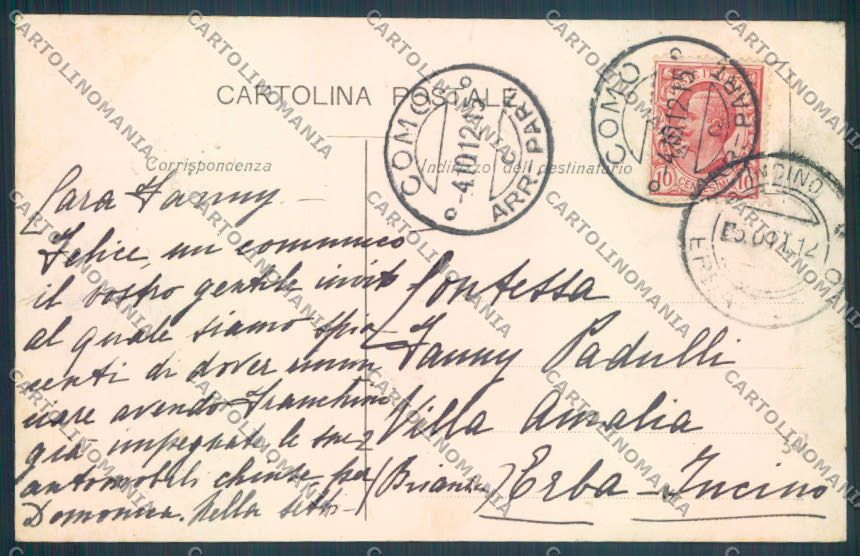 CARTOLINA POSTALE
Corrispondenza
Indirizzo del destinatario
COMO
-4.10.12.15
ARR. PART.
COMO
-4.10.12.15
ARR. PART.
10 CENTESIMI 10
INCINO
5 OTT. 12
Cara Fanny
Felice, mi comunicò
il vostro gentile invito
al quale siamo spia-
centi di dover rinun
ciare avendo Franchino
già impegnate le sue 2
automobili chiuse per
Domenica. Nella
Contessa
Fanny Padulli
Villa Amalia
(Brianza) Erba-Incino
CARTOLINOMANIA